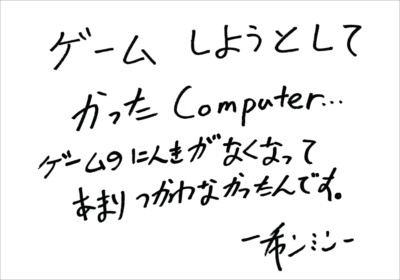 ゲーム しようとして
かった Computer...
ゲームのにんきがなくなって
あまりつかわなかったんです。